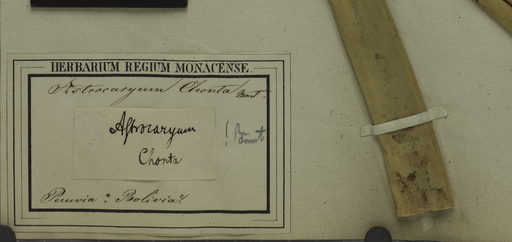 HERBARIUM REGIUM MONACENSE.
Astrocaryum Chonta Mart.
Astrocaryum
Chonta
Peruvia? Bolivia?